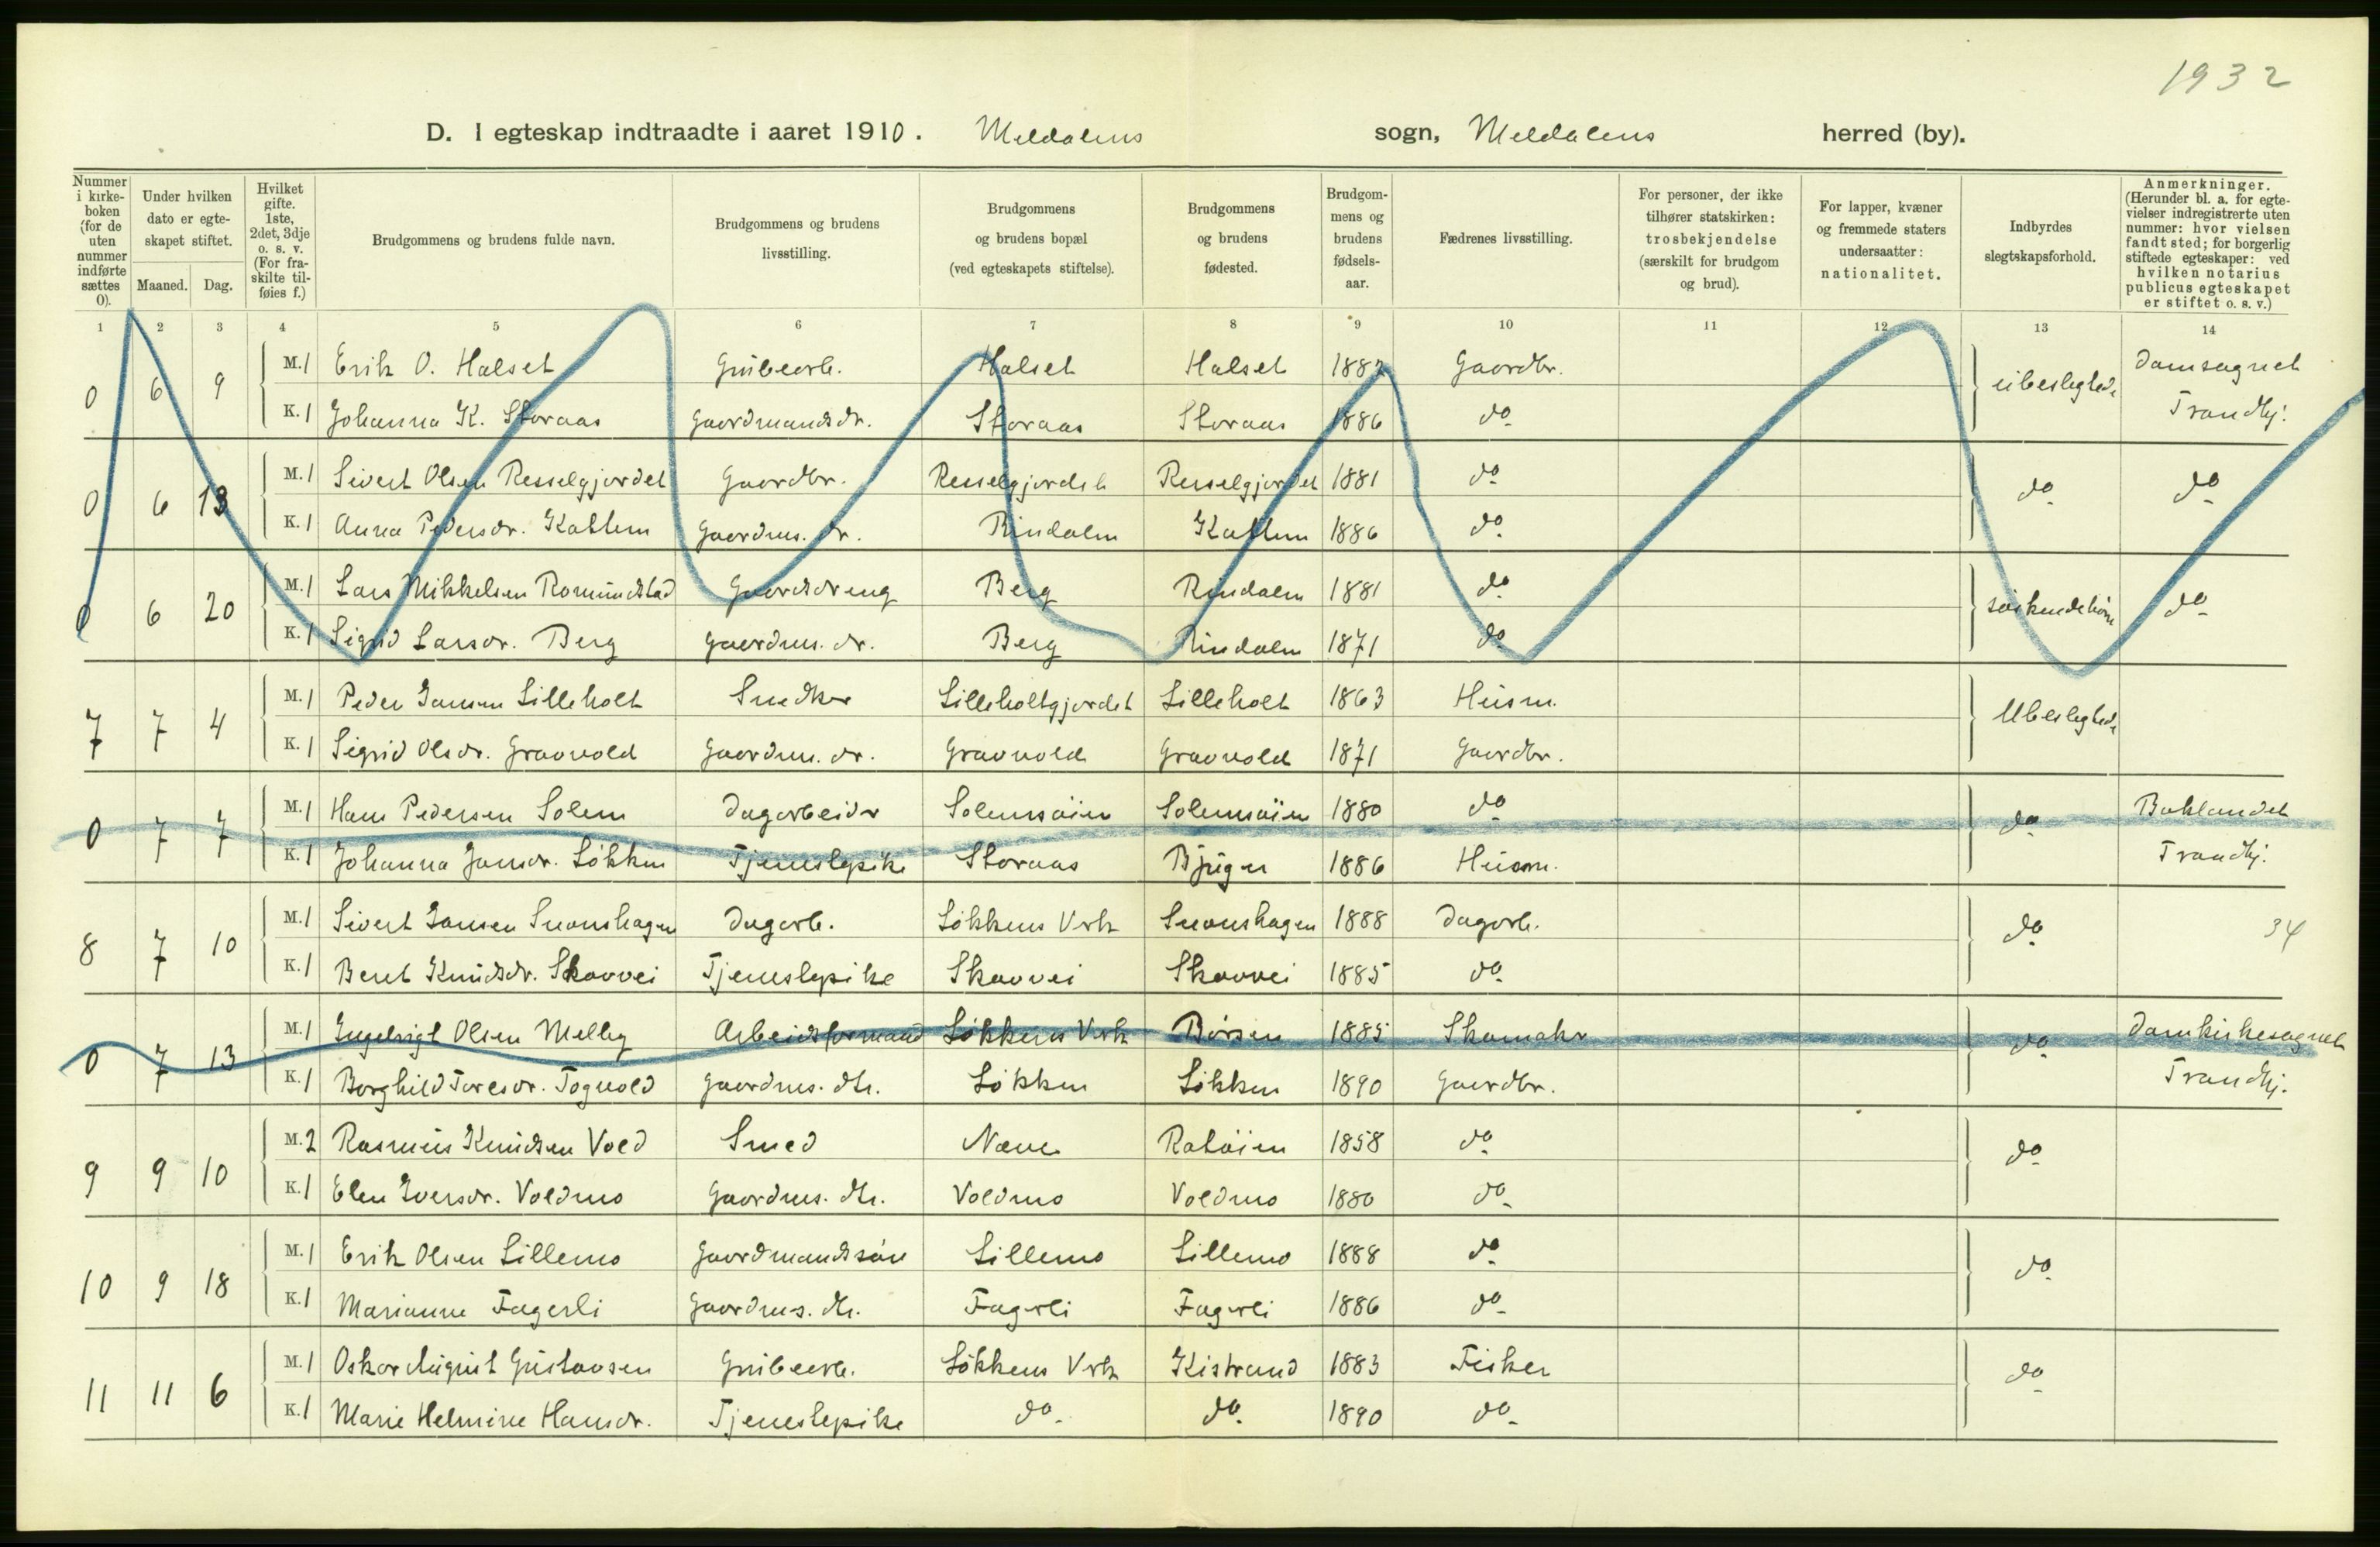 1932
D. I egteskap indtraadte i aaret 1910. Meldalens sogn, Meldalens herred (by).
Nummer i kirke-boken (for de uten nummer indførte sættes 0).
Under hvilken dato er egte-skapet stiftet.
Maaned. Dag.
Hvilket gifte. 1ste, 2det, 3dje o. s. v. (For fra-skilte til-føies f.)
Brudgommens og brudens fulde navn.
Brudgommens og brudens livsstilling.
Brudgommens og brudens bopæl (ved egteskapets stiftelse).
Brudgommens og brudens fødested.
Brudgom-mens og brudens fødsels-aar.
Fædrenes livsstilling.
For personer, der ikke tilhører statskirken: trosbekjendelse (særskilt for brudgom og brud).
For lapper, kvæner og fremmede staters undersaatter: nationalitet.
Indbyrdes slegtskapsforhold.
Anmerkninger. (Herunder bl. a. for egte-vielser indregistrerte uten nummer: hvor vielsen fandt sted; for borgerlig stiftede egteskaper: ved hvilken notarius publicus egteskapet er stiftet o. s. v.)
1 2 3 4 5 6 7 8 9 10 11 12 13 14
0 6 9 M. 1 Erik O. Halset Grubearb. Halset Halset 1882 Gaardbr. ubeslegtede Domsognet
K. 1 Johanna K. Storaas Gaardmandsdr. Storaas Storaas 1886 do Trondhj.
0 6 13 M. 1 Sivert Olsen Resselgjordet Gaardbr. Resselgjordet Resselgjordet 1881 do do do
K. 1 Anna Pedersdr. Kattem Gaardms. dr. Rindalen Kattem 1886 do
0 6 20 M. 1 Lars Mikkelsen Romundstad Gaardsdreng Berg Rindalen 1881 do søskendebørn do
K. 1 Sigrid Larsdr. Berg Gaardms. dr. Berg Rindalen 1871 do
7 7 4 M. 1 Peder Jansen Lilleholt Snedker Lilleholtgjordet Lilleholt 1863 Husm. Ubeslegtede
K. 1 Sigrid Olsdr. Gravvold Gaardms. dr. Gravvold Gravvold 1871 Gaardbr.
0 7 7 M. 1 Hans Pedersen Solem Dagarbeider Solemsøien Solemsøien 1880 do do Baklandet
K. 1 Johanna Jonsdr. Løkken Tjenestepike Storaas Bjugn 1886 Husm. Trondhj.
8 7 10 M. 1 Sivert Jansen Snoenshagen Dagarb. Løkkens Verk Snoenshagen 1888 Dagarb. do 34
K. 1 Beret Knudsdr. Skovvei Tjenestepike Skovvei Skovvei 1885 do
0 7 13 M. 1 Ingebrigt Olsen Melby Arbeidsformand Løkkens Verk Børsen 1885 Skomaker do Domkirkesognet
K. 1 Borghild Toresdr. Fogvold Gaardms. dtr. Løkken Løkken 1890 Gaardbr. Trondhj.
9 9 10 M. 2 Rasmus Knudsen Vold Smed Næve Ratøien 1858 do do
K. 1 Elen Iversdr. Voldmo Gaardms. dtr. Voldmo Voldmo 1880 do
10 9 18 M. 1 Erik Olsen Lillemo Gaardmandssøn Lillemo Lillemo 1888 do do
K. 1 Marianne Fagerli Gaardms. dtr. Fagerli Fagerli 1886 do
11 11 6 M. 1 Oskar August Gustavsen Grubearb. Løkkens Verk Kistrand 1883 Fisker do
K. 1 Marie Helmine Hansdr. Tjenestepike do. do. 1890 do